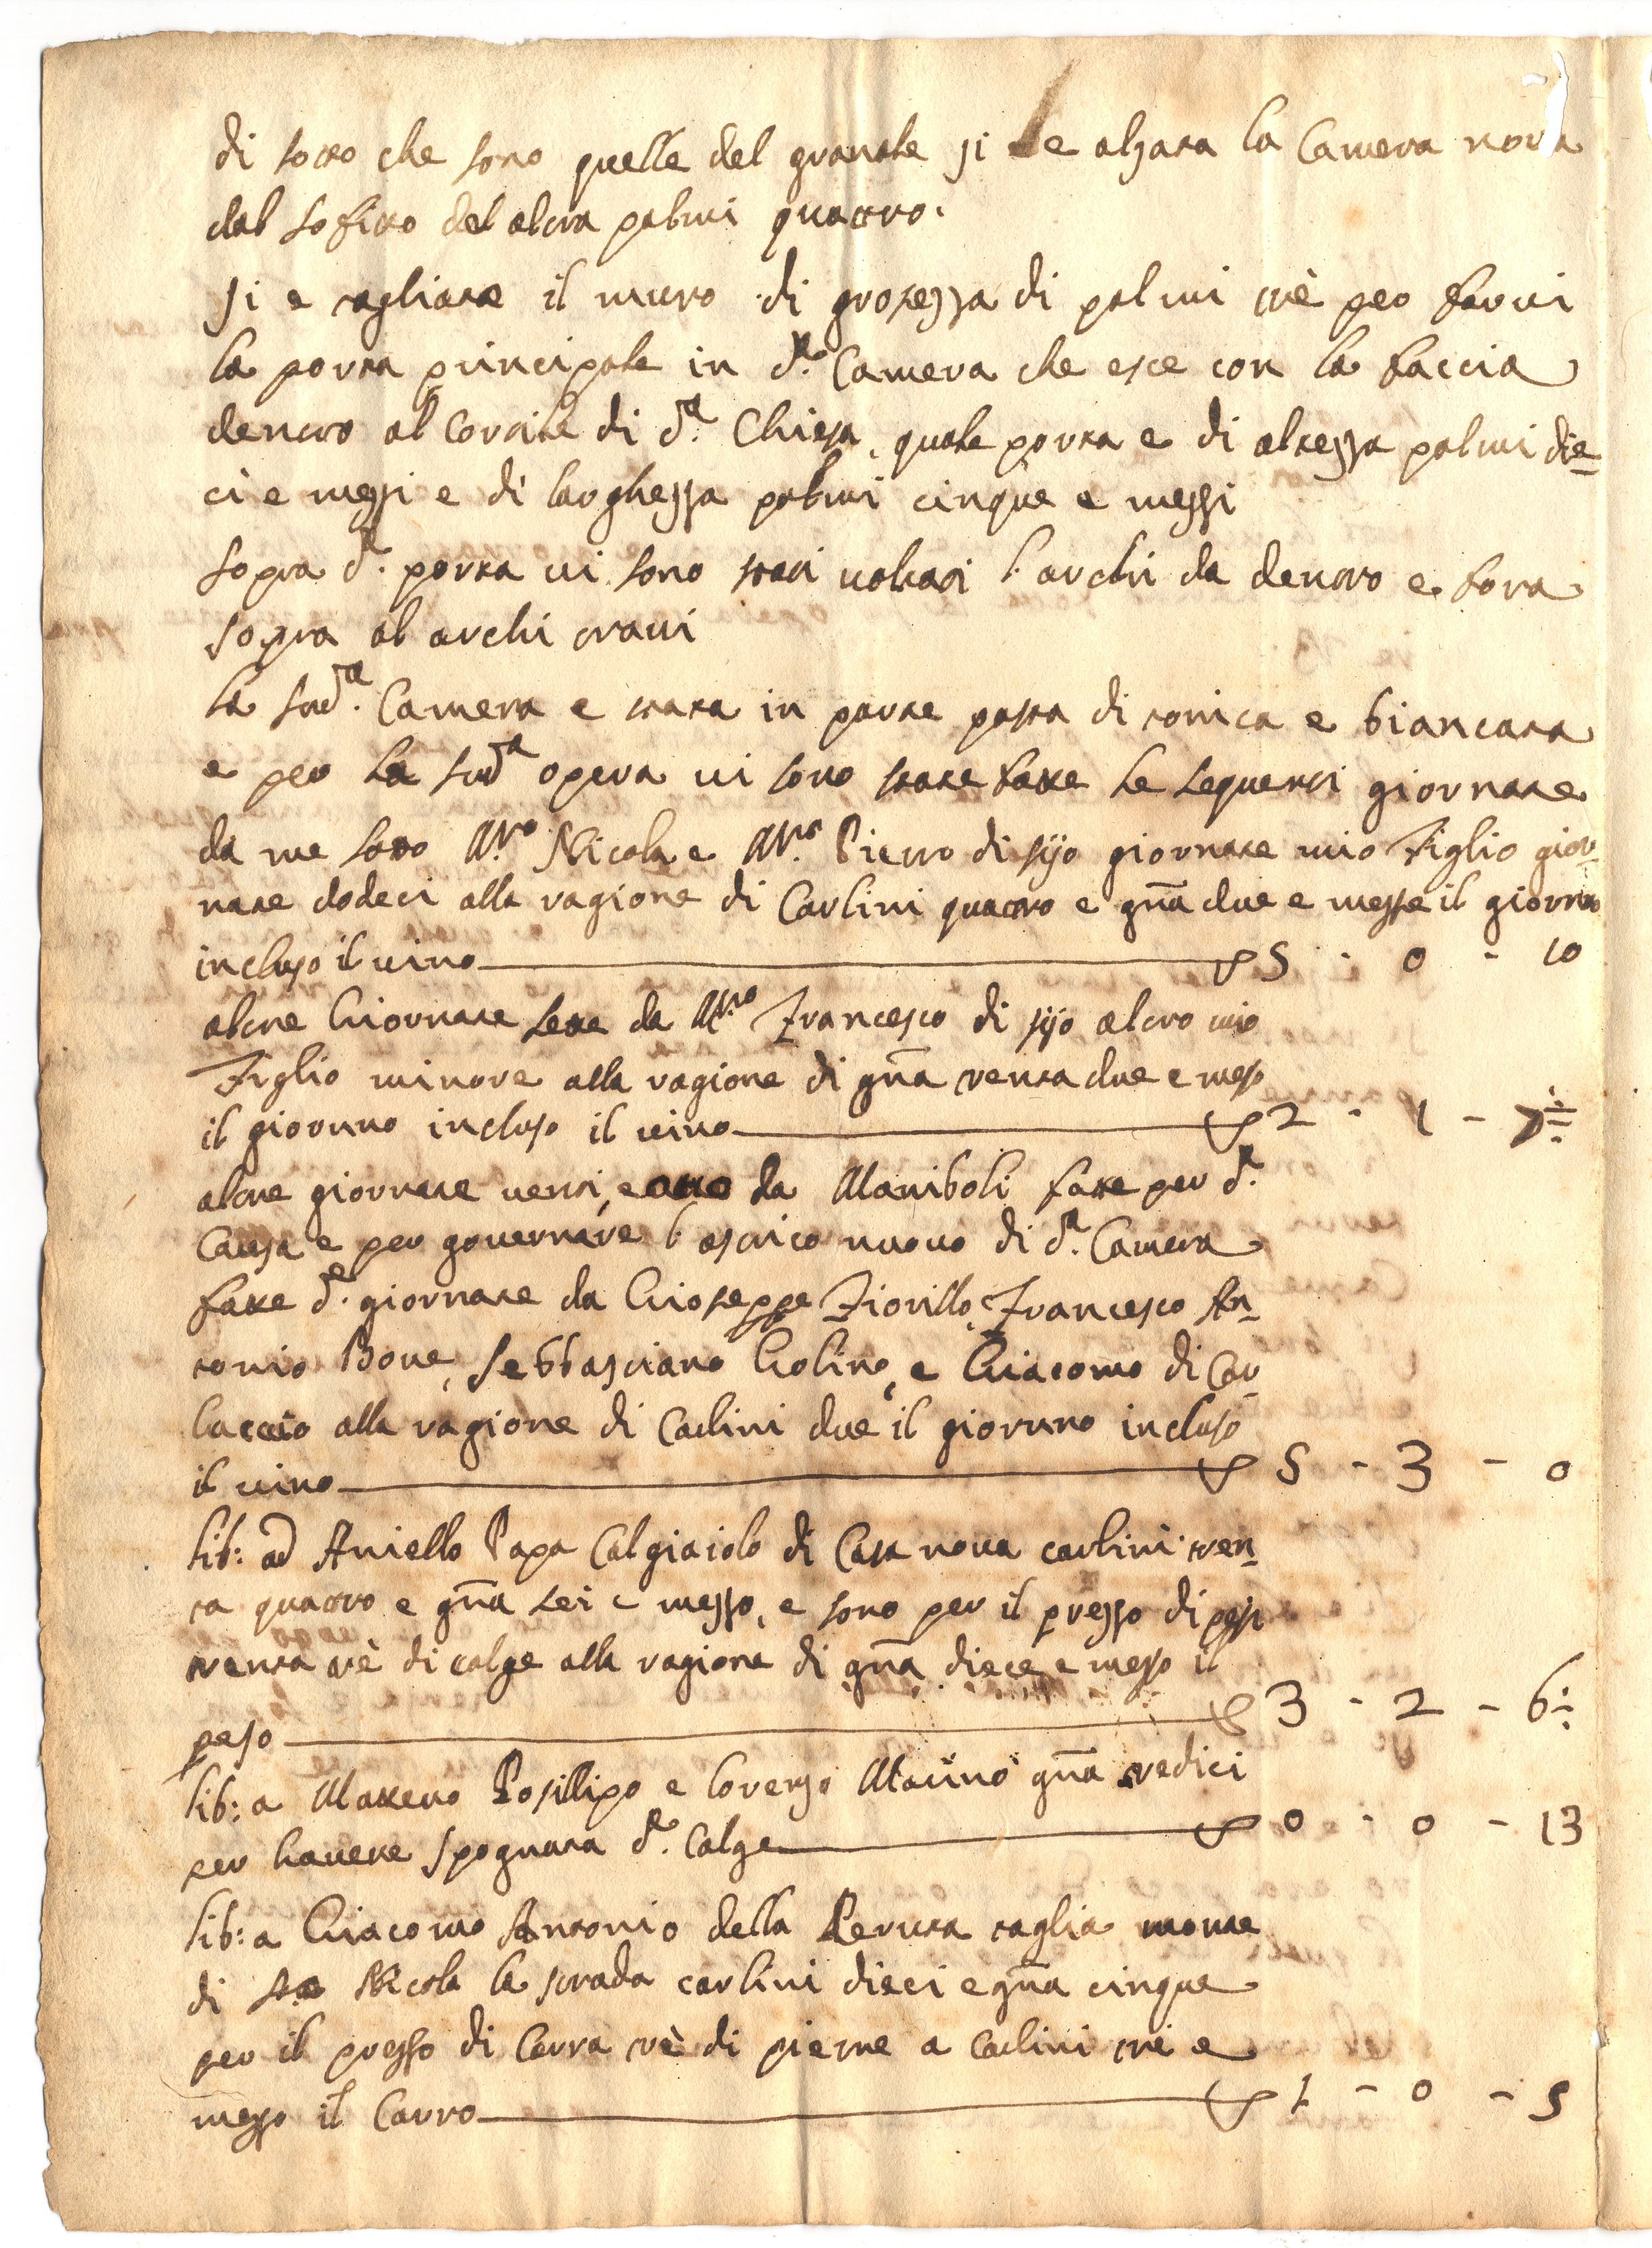 di sotto che sono quelle del granale si è alzata la Camera nova
dal sofitto del altra palmi quattro.
Si e tagliate il muro di grosezza di palmi trè per farvi
la porta principale in d.ª Camera che esce con la faccia
dentro al Cortile di d.ª Chiesa, quale porta e di altezza palmi die-
ci e mezzi e di larghezza palmi cinque e mezzi
sopra d.ª porta vi sono stati voltati l'archi da dentro e fora
sopra al archi travi
la sud.ª Camera e stata in parte posta di tonica e biancata
e per la sud.ª opera vi sono state fatte le sequenti giornate
da me sotto M.ro Nicola e M.ro Pietro di sijo giornate mio Figlio gior-
nate dodeci alla ragione di Carlini quattro e gña due e mezze il giorno
incluso il vino 5 - 0 - 10
altre Giornate sette da M.ro Francesco di sijo altro mio
Figlio minore alla ragione di gña trenta due e mezo
il giorno incluso il vino 2 - 1 - 7÷
altre giornate venti, e otto da Maniboli fatte per d.ª
Causa e per governare l'astrico nuovo di d.ª Camera
fatte d.e giornate da Gioseppe Fiorillo, Francesco An-
tonio Bove, Sebbastiano Golino, e Giacomo di Car-
luccio alla ragione di Carlini due il giorno incluso
il vino 5 - 3 - 0
lib: ad Aniello Papa Calgiaiolo di Casa nova carlini tren-
ta quattro e gña sei e mezzo, e sono per il prezzo di pesi
trenta trè di calge alla ragione di gña diece e mezo il
peso 3 - 2 - 6÷
lib: a Matteuo Posillipo e lorenzo Macino gña tredici
per havere spognata d.ª Calge 0 - 0 - 13
lib: a Giacomo Antonio della Peruta taglia monte
di Nicola la strada carlini dieci e gña cinque
per il prezzo di Carra trè di pietre a carlini trè e
mezzo il Carro 1 - 0 - 5